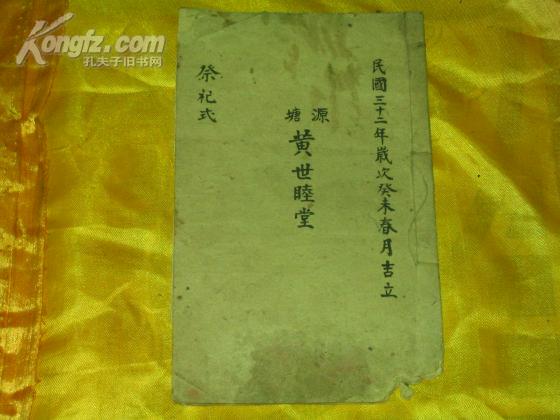 Kongfz.com
孔夫子旧书网
民國三十二年歲次癸未春月吉立
源塘
黄世睦堂
祭礼式